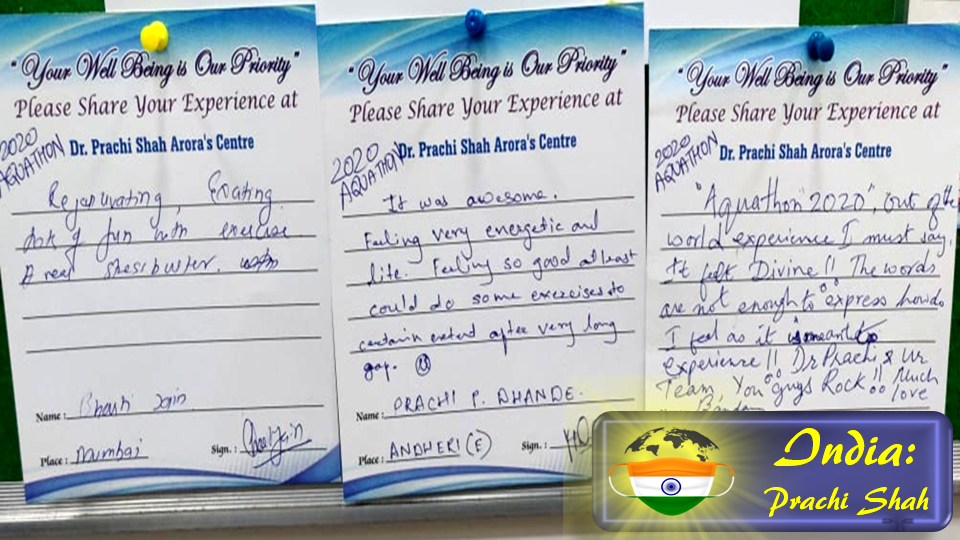 "Your Well Being is Our Priority"
Please Share Your Experience at
Dr. Prachi Shah Arora's Centre
2020
AQUATHON
Rejanuvating, Exating
lots of fun with exercise
A real stressbuster.
Name :
Bharti Jain
Place : Mumbai
Sign. :
"Your Well Being is Our Priority"
Please Share Your Experience at
Dr. Prachi Shah Arora's Centre
2020
AQUATHON
It was awesome.
Feeling very energetic and
lite. Feeling so good atleast
could do some exercises to
certain extent after very long
gap.
Name : PRACHI P. DHANDE.
Place : ANDHERI (E)
Sign. :
"Your Well Being is Our Priority"
Please Share Your Experience at
Dr. Prachi Shah Arora's Centre
2020
AQUATHON
"Aquathon "2020", out of the
world experience I must say,
It felt Divine!! The words
are not enough to express how do
I feel as it is meant to
experience!! Dr Prachi & ur
Team, You guys Rock!! Much
love
India:
Prachi Shah